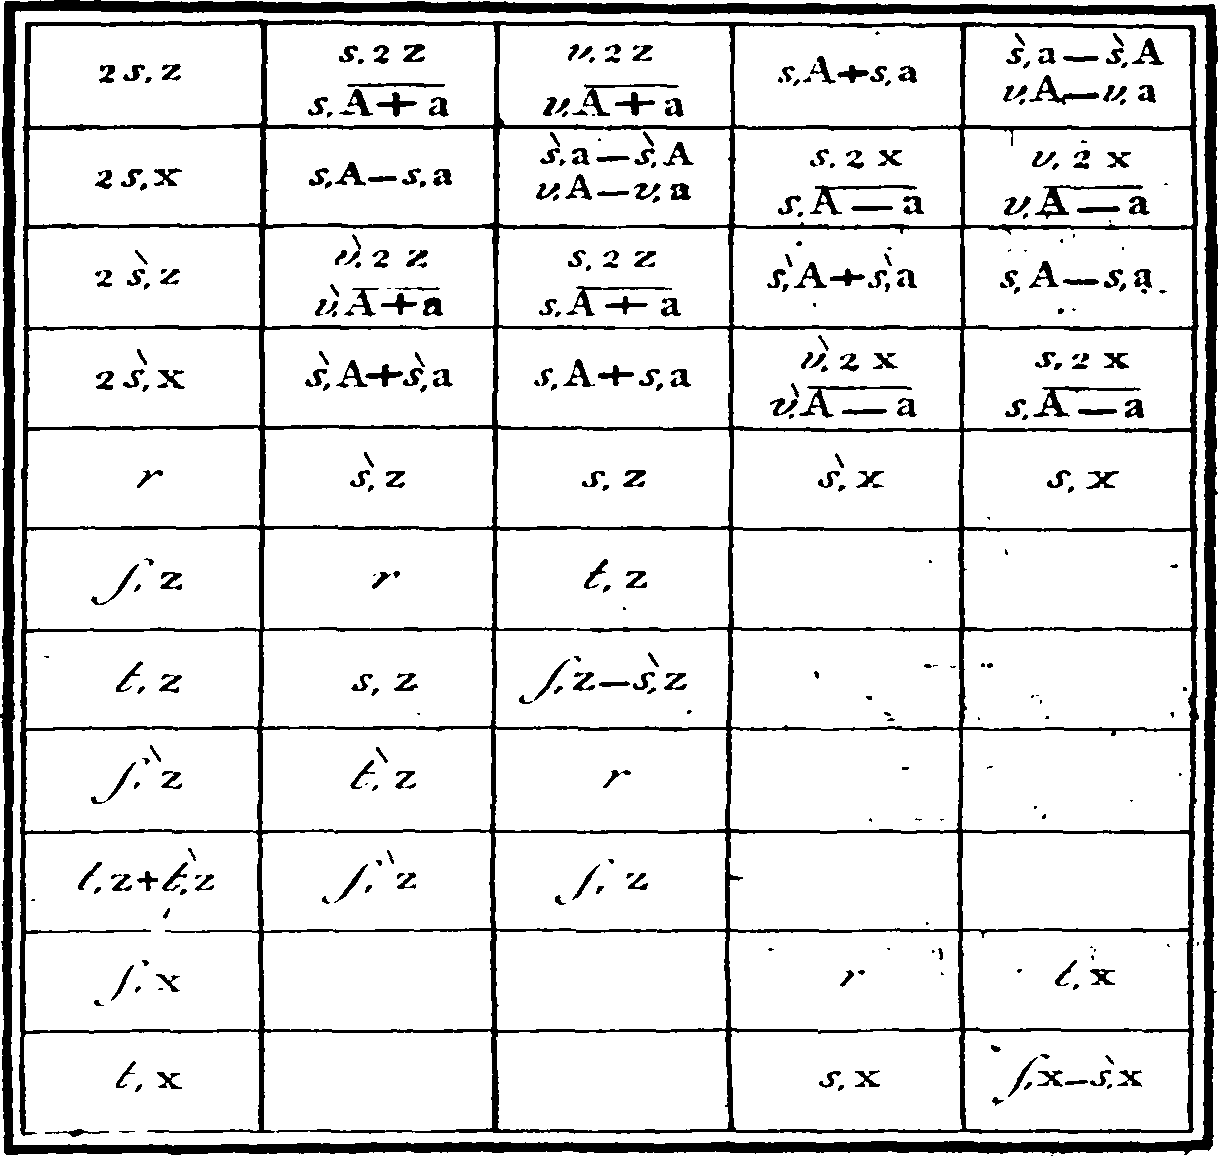 2 s, z
s, 2 z
s, A + a
v, 2 z
v, A + a
s, A + s, a
s̀, a — s̀, A
v, A — v, a
2 s, x
s, A — s, a
s̀, a — s̀, A
v, A — v, a
s, 2 x
s, A — a
v, 2 x
v, A — a
2 s̀, z
v̀, 2 z
v̀, A + a
s, 2 z
s, A + a
s̀, A + s̀, a
s, A — s, a
2 s̀, x
s̀, A + s̀, a
s, A + s, a
v̀, 2 x
v̀, A — a
s, 2 x
s, A — a
r
s̀, z
s, z
s̀, x
s, x
ſ, z
r
t, z
t, z
s, z
ſ, z — s̀, z
ſ̀, z
t̀, z
r
t, z + t̀, z
ſ̀, z
ſ, z
ſ, x
r
t, x
t, x
s, x
ſ, x — s̀, x